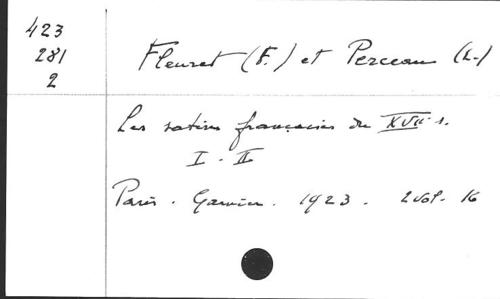 423
281
2
Fleuret (F.) et Perceau (L.)
Les satires françaises du XVIIe s.
I - II
Paris. Garnier. 1923. 2 vol. 16